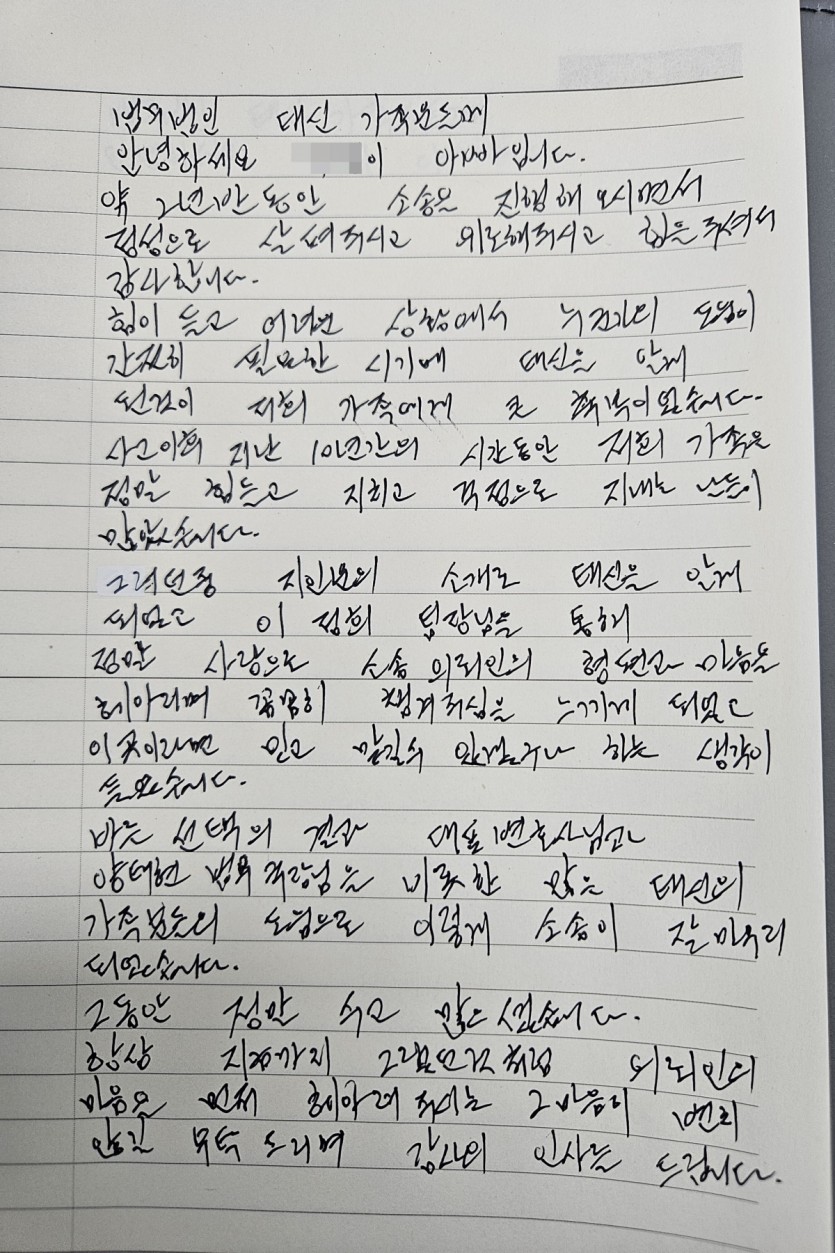 법무법인 대신 가족분들께
안녕하세요 이 아빠입니다.
약 2년반 동안 소송을 진행해 오시면서
정성으로 살펴주시고 위로해주시고 힘을 주셔서
감사합니다.
힘이 들고 어려운 상황에서 누군가의 도움이
간절히 필요한 시기에 대신을 알게
된것이 저희 가족에게 큰 축복이었습니다.
사고이후 지난 10년간의 시간동안 저희 가족은
정말 힘들고 지치고 걱정으로 지내는 날들이
많았습니다.
그러던중 지인분의 소개로 대신을 알게
되었고 이 정희 팀장님을 통해
정말 사랑으로 소송 의뢰인의 형편과 마음을
헤아리며 꼼꼼히 챙겨주심을 느끼게 되었고
이곳이라면 믿고 맡길수 있겠구나 하는 생각이
들었습니다.
바른 선택의 결과 대표변호사님과
양태현 법무국장님을 비롯한 많은 대신의
가족분들의 도움으로 이렇게 소송이 잘 마무리
되었습니다.
그동안 정말 수고 많으셨습니다.
항상 지금까지 그래왔던것처럼 의뢰인의
마음을 먼저 헤아려 주시는 그 마음이 변치
않길 부탁 드리며 감사의 인사를 드립니다.